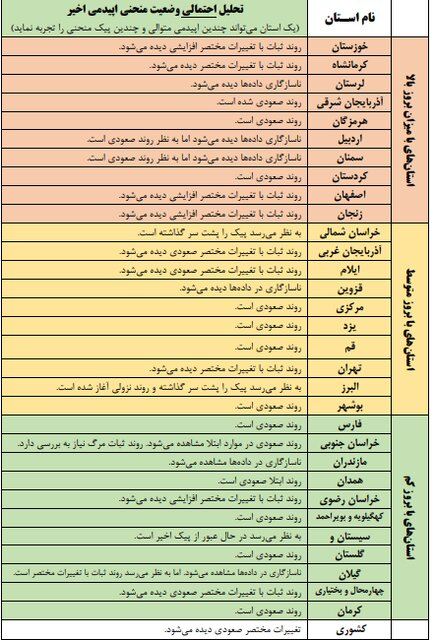 نام استان
تحلیل احتمالی وضعیت منحنی اپیدمی اخیر
(یک استان می‌تواند چندین اپیدمی متوالی و چندین پیک منحنی را تجربه نماید)
استان‌های با میزان بروز بالا
خوزستان روند ثبات با تغییرات مختصر افزایشی دیده می‌شود.
کرمانشاه روند ثبات با تغییرات مختصر دیده می‌شود.
لرستان ناسازگاری داده‌ها دیده می‌شود.
آذربایجان شرقی روند صعودی شده است.
هرمزگان روند صعودی است.
اردبیل ناسازگاری داده‌ها دیده می‌شود اما به نظر روند صعودی است.
سمنان ناسازگاری داده‌ها دیده می‌شود اما به نظر روند صعودی است.
کردستان روند صعودی است.
اصفهان روند ثبات با تغییرات مختصر افزایشی دیده می‌شود.
زنجان روند ثبات با تغییرات مختصر افزایشی دیده می‌شود.
استان‌های با بروز متوسط
خراسان شمالی به نظر می‌رسد پیک را پشت سر گذاشته است.
آذربایجان غربی روند ثبات با تغییرات مختصر صعودی دیده می‌شود.
ایلام روند ثبات با تغییرات مختصر صعودی دیده می‌شود.
قزوین ناسازگاری در داده‌ها دیده می‌شود.
مرکزی روند صعودی است.
یزد روند صعودی است.
قم روند صعودی است.
تهران روند ثبات با تغییرات مختصر دیده می‌شود.
البرز به نظر می‌رسد پیک را پشت سر گذاشته و روند نزولی آغاز شده است.
بوشهر روند صعودی است.
استان‌های با بروز کم
فارس روند صعودی است.
خراسان جنوبی روند صعودی در موارد ابتلا مشاهده می‌شود. روند ثبات مرگ نیاز به بررسی دارد.
مازندران ناسازگاری در داده‌ها مشاهده می‌شود.
همدان روند ابتلا صعودی است.
خراسان رضوی روند ثبات با تغییرات مختصر افزایشی دیده می‌شود.
کهگیلویه و بویراحمد روند صعودی است.
سیستان و به نظر می‌رسد در حال عبور از پیک اخیر است.
گلستان روند صعودی است.
گیلان ناسازگاری در داده‌ها مشاهده می‌شود. اما به نظر می‌رسد روند ثبات با تغییرات مختصر است.
چهارمحال و بختیاری روند ثبات با تغییرات مختصر صعودی دیده می‌شود.
کرمان روند صعودی است.
کشوری تغییرات مختصر صعودی دیده می‌شود.